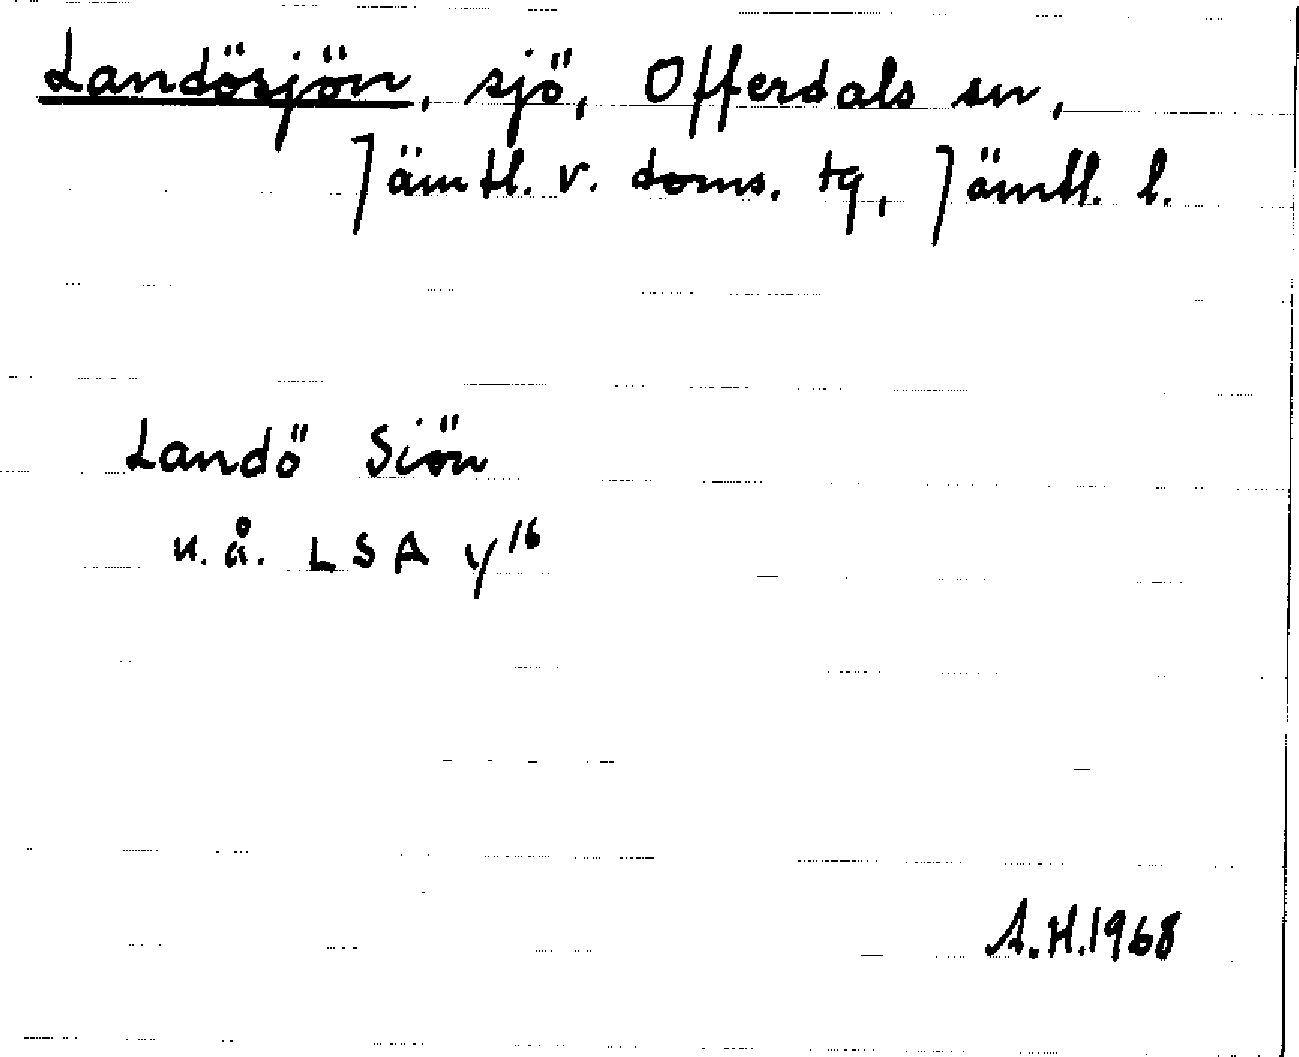 Landösjön, sjö, Offerdals sn,
Jämtl. v. doms. tg, Jämtl. l.
Landö Siön
u.å. LSA Y16
A.H.1968